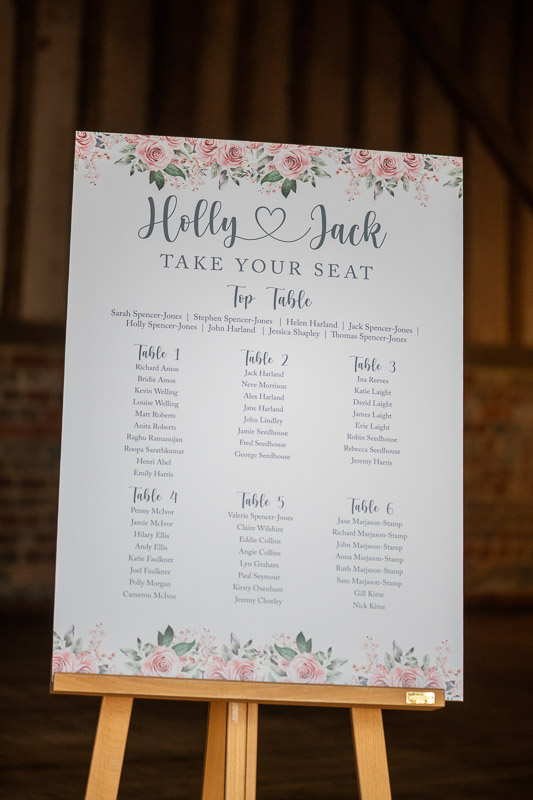 Holly Jack
TAKE YOUR SEAT
Top Table
Sarah Spencer-Jones | Stephen Spencer-Jones | Helen Harland | Jack Spencer-Jones |
Holly Spencer-Jones | John Harland | Jessica Shapley | Thomas Spencer-Jones
Table 1
Richard Amos
Bridie Amos
Kevin Welling
Louise Welling
Matt Roberts
Anita Roberts
Raghu Ramanujan
Roopa Sarathkumar
Henri Abel
Emily Harris
Table 2
Jack Harland
Neve Morrison
Alex Harland
Jane Harland
John Lindley
Jamie Seedhouse
Fred Seedhouse
George Seedhouse
Table 3
Ina Reeves
Katie Laight
David Laight
James Laight
Evie Laight
Robin Seedhouse
Rebecca Seedhouse
Jeremy Harris
Table 4
Penny McIvor
Jamie McIvor
Hilary Ellis
Andy Ellis
Katie Faulkner
Joel Faulkner
Polly Morgan
Cameron McIvor
Table 5
Valerie Spencer-Jones
Claire Wilshire
Eddie Collins
Angie Collins
Lyn Graham
Paul Seymour
Kirsty Oxenham
Jeremy Chorley
Table 6
Jane Marjason-Stamp
Richard Marjason-Stamp
John Marjason-Stamp
Anna Marjason-Stamp
Ruth Marjason-Stamp
Sam Marjason-Stamp
Gill Kime
Nick Kime